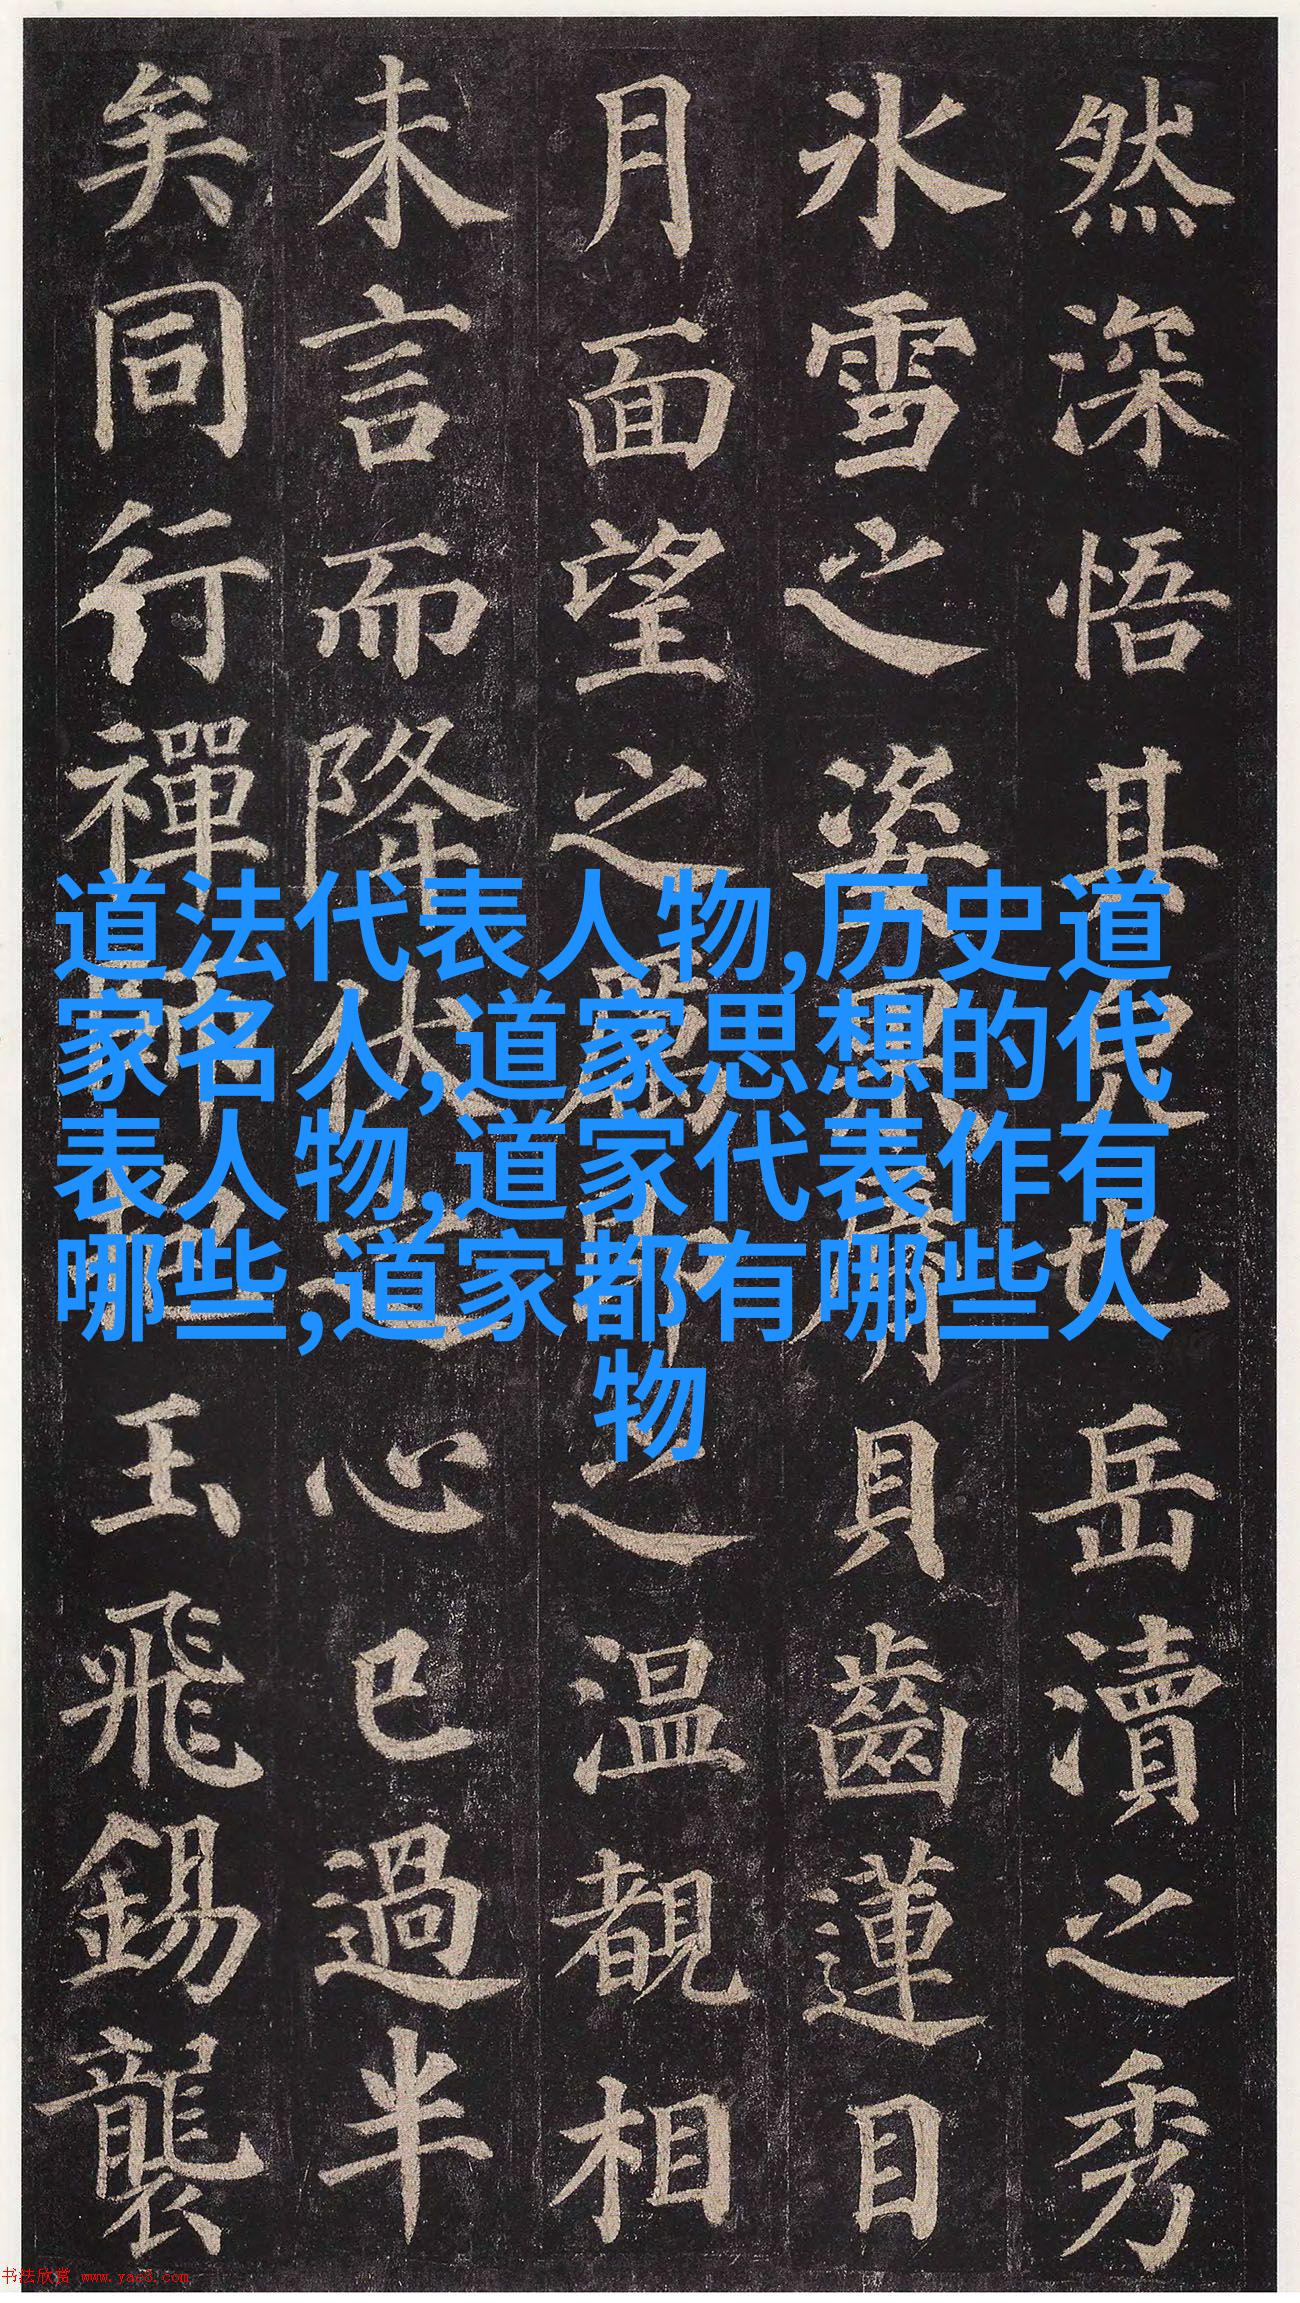 然深悟其皃也岳瀆之秀
氷雪之姿果脣貝齒蓮目
月面望之厲即之温覩相
未言而降伏之心已過半
矣同行禪師抱玉飛錫襲
道法代表人物,历史道
家名人,道家思想的代
表人物,道家代表作有
哪些,道家都有哪些人
物
书法欣赏 www.yac8.com